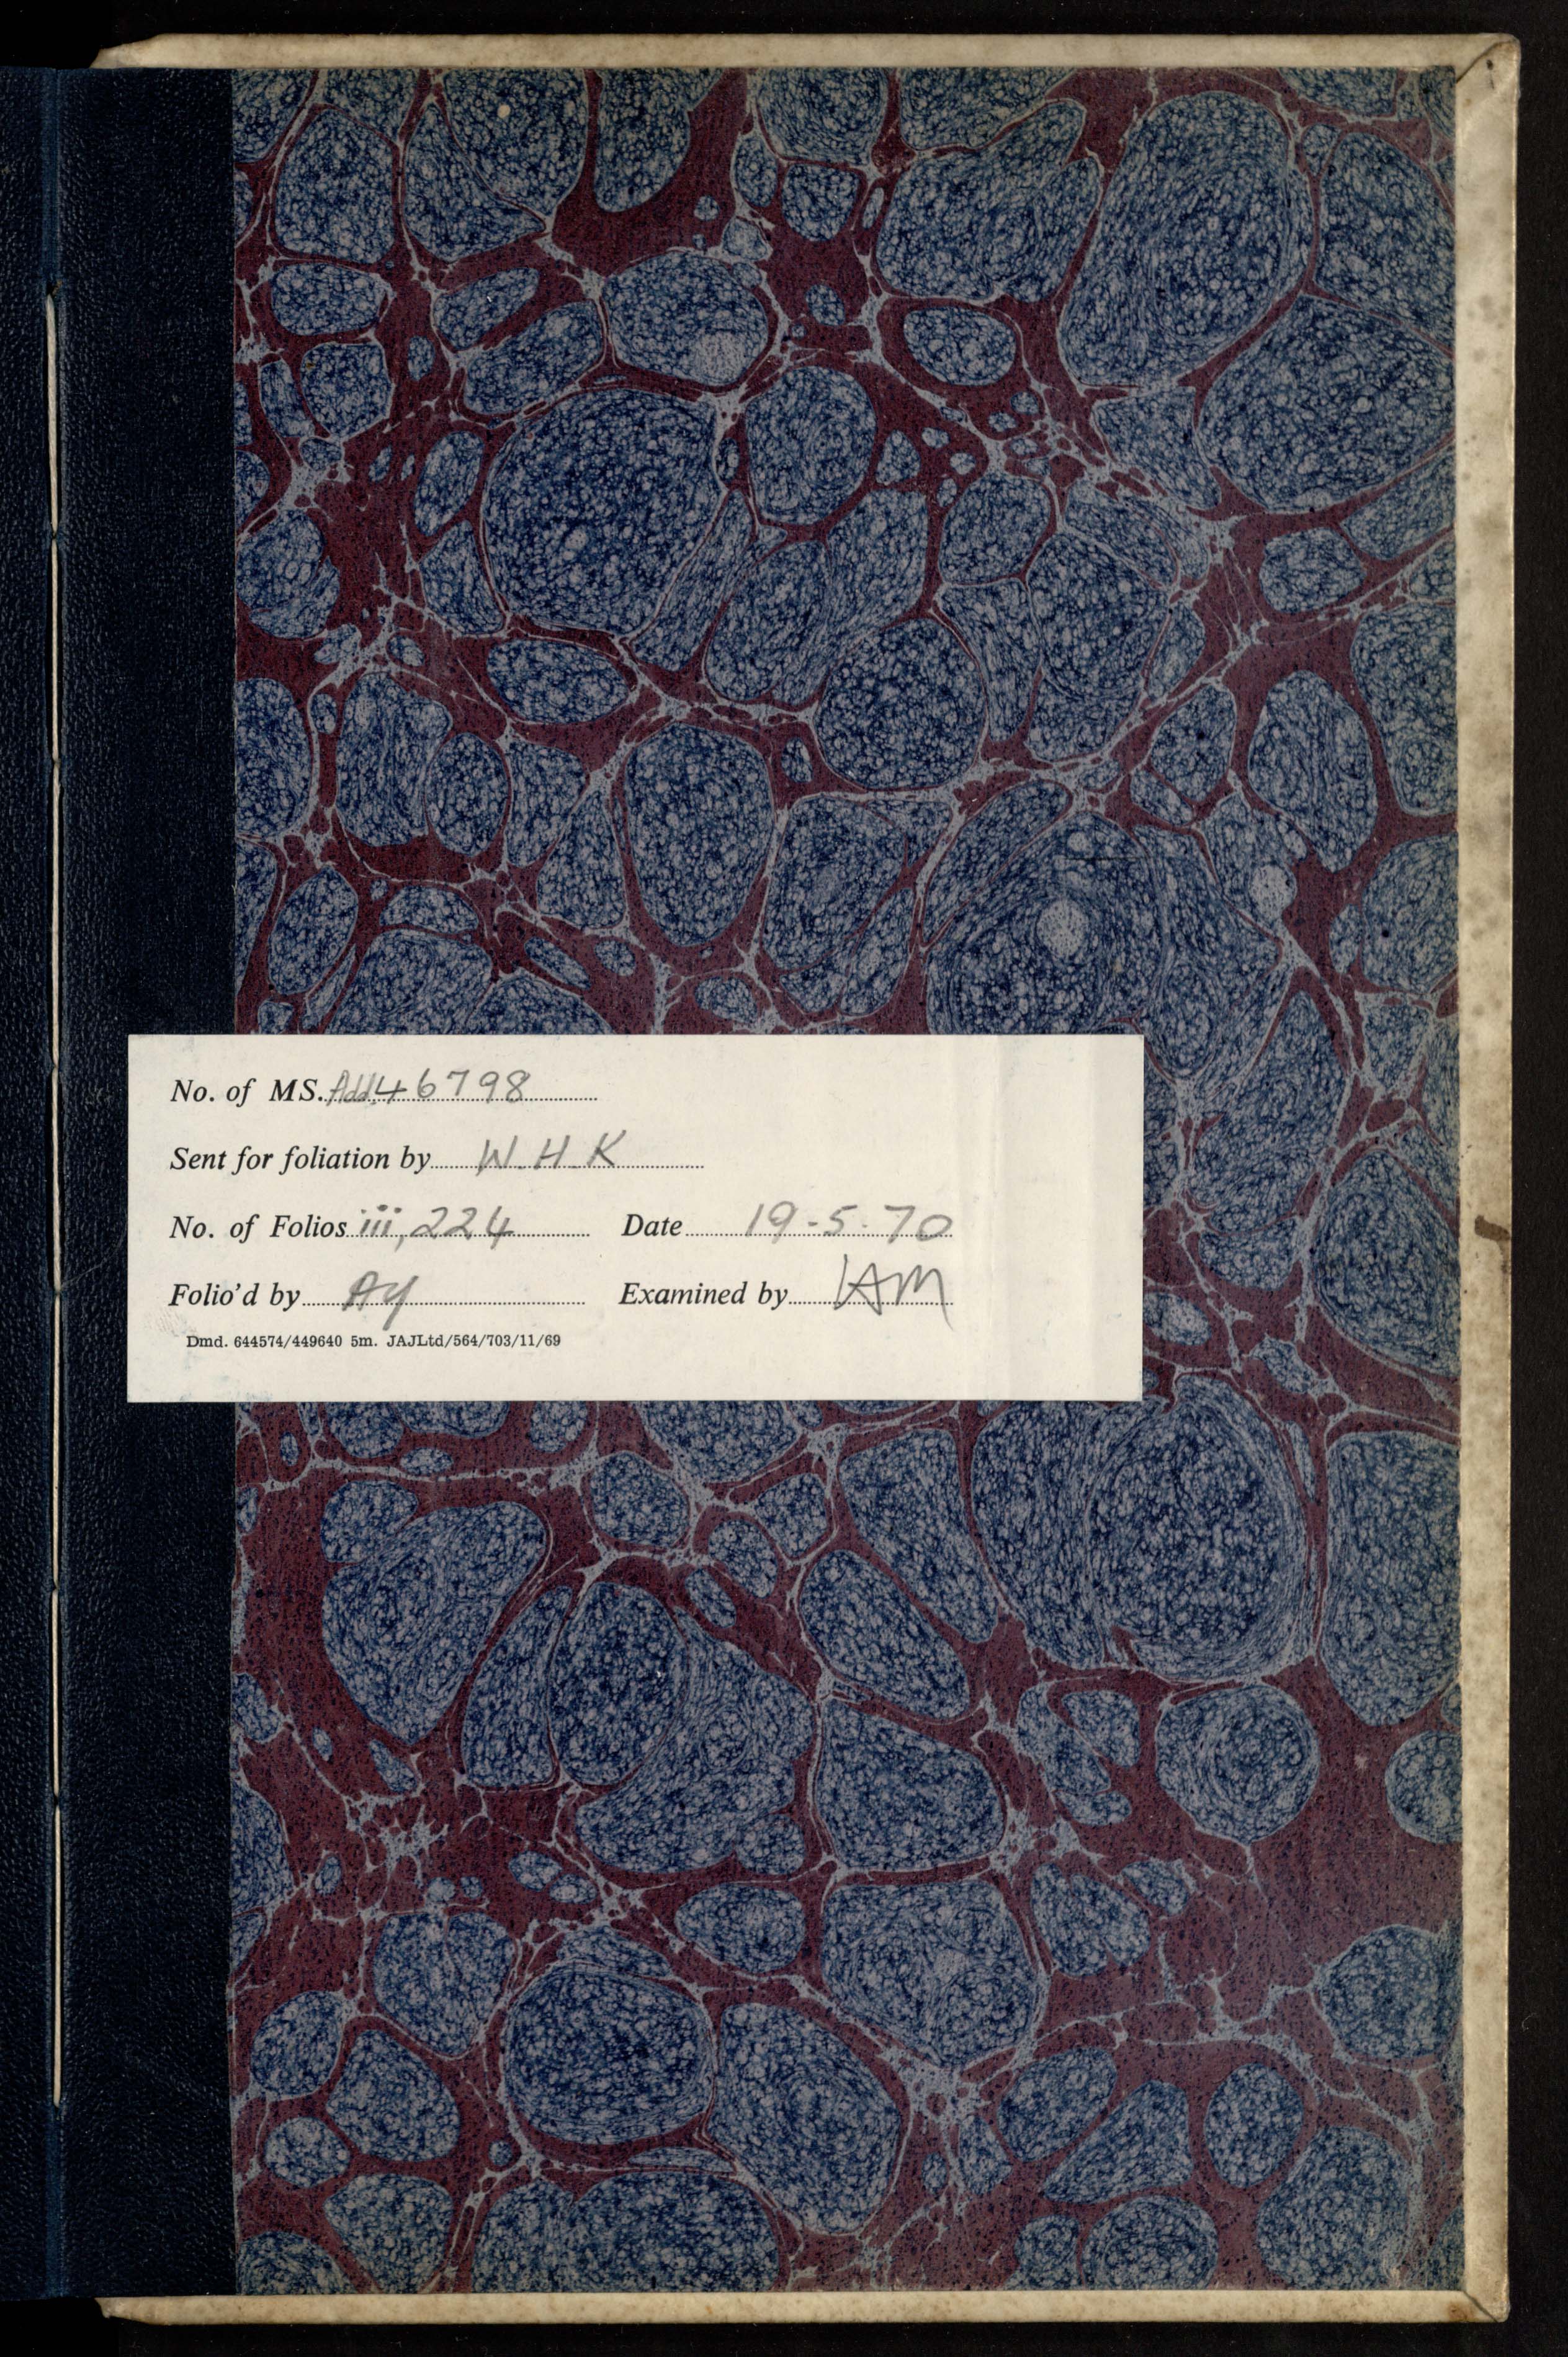 No. of MS. Add. 46798
Sent for foliation by W. H. K
No. of Folios iii, 224 Date 19-5-70
Folio'd by AY Examined by
Dmd. 644574/449640 5m. JAJLtd/564/703/11/69